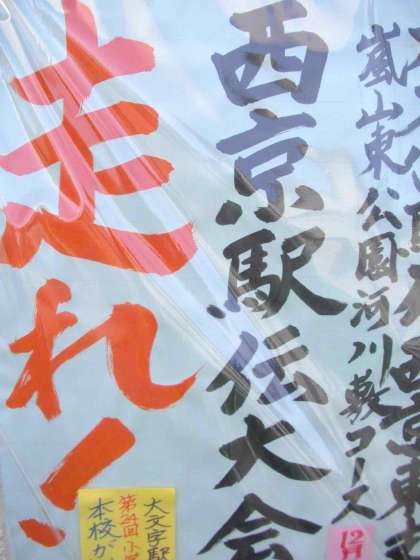 嵐山東公園河川敷コース
西京駅伝大会
走れ!
12月
大文字駅
第24回
本校か